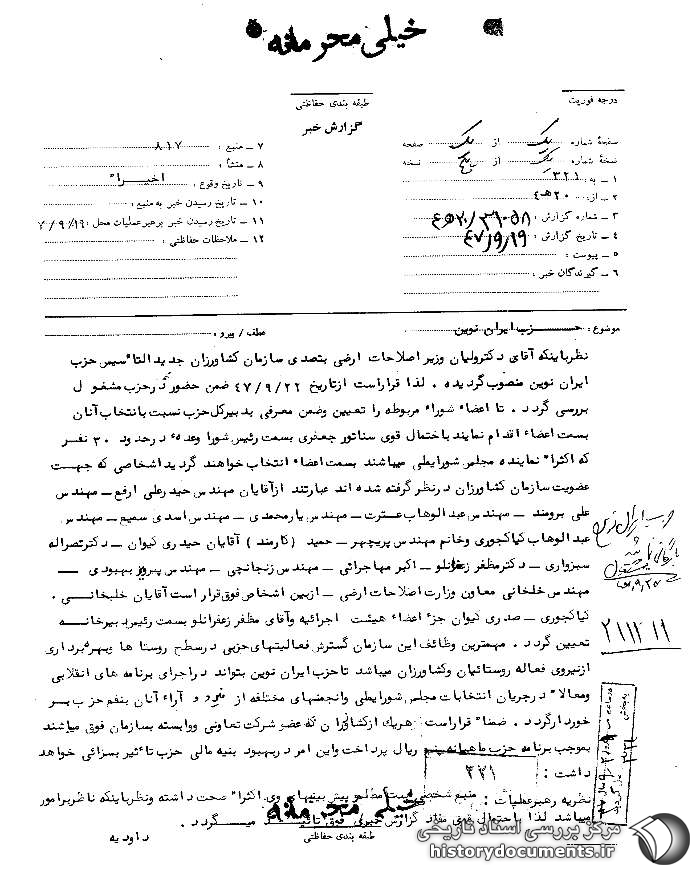 خیلی محرمانه
درجه فوریت
طبقه بندی حفاظتی
گزارش خبر
صفحهٔ شماره یک از یک صفحه
نسخهٔ شماره یک از پنج نسخه
۱ ـ به: ۳۲۱
۲ ـ از: ۲۰ ه‍ ۴
۳ ـ شماره گزارش:
۴ ـ تاریخ گزارش: ۴۷/۹/۱۹
۵ ـ پیوست:
۶ ـ گیرندگان خبر:
۷ ـ منبع: ۸۱۷
۸ ـ منشأ:
۹ ـ تاریخ وقوع: اخیراً
۱۰ ـ تاریخ رسیدن خبر به منبع:
۱۱ ـ تاریخ رسیدن خبر برهبر عملیات محل: ۷/۹/۱۹
۱۲ ـ ملاحظات حفاظتی:
موضوع: حزب ایران نوین
عطف / پیرو:
نظرباینکه آقای دکترولیان وزیر اصلاحات ارضی بتصدی سازمان کشاورزان جدیدالتأسیس حزب
ایران نوین منصوب گردیده . لذا قراراست ازتاریخ ۴۷/۹/۲۲ ضمن حضور درحزب مشغول
بررسی گردد . تا اعضاء شوراء مربوطه را تعیین وضمن معرفی بدبیرکل حزب نسبت بانتخاب آنان
بسمت اعضاء اقدام نمایند باحتمال قوی سناتور جعفری بسمت رئیس شورا وعدهء درحدود ۳۰ نفر
که اکثراً نماینده مجلس شورایملی میباشند بسمت اعضاء انتخاب خواهند گردید اشخاصی که جهت
عضویت سازمان کشاورزان درنظر گرفته شده اند عبارتند ازآقایان مهندس حیدرعلی ارفع ـ مهندس
علی برومند ـ مهندس عبدالوهاب عشرت ـ مهندس یارمحمدی ـ مهندس اسدی سمیع ـ مهندس
عبدالوهاب کیاکجوری وخانم مهندس پریچهر ـ حمید (کارمند) آقایان حیدری کیوان ـ دکترنصراله
سبزواری ـ دکترمظفر زعفرانلو ـ اکبر مهاجرانی ـ مهندس زنجانچی ـ مهندس پیروز بهبودی ـ
مهندس خلخانی معاون وزارت اصلاحات ارضی ـ ازبین اشخاص فوق قرار است آقایان خلیخانی .
کیاکجوری ـ صدری کیوان جزء اعضاء هیئت اجرائیه وآقای مظفر زعفرانلو بسمت رئیس دبیرخانه
تعیین گردد . مهمترین وظائف این سازمان گسترش فعالیتهای حزبی درسطح روستا ها وبهره برداری
ازنیروی فعاله روستائیان وکشاورزان میباشد تاحزب ایران نوین بتواند دراجرای برنامه های انقلابی
ومعالاً درجریان انتخابات مجلس شورایملی وانجمنهای مختلفه از نفوذ و آراء آنان بنفع حزب بر
خوردارگردد . ضمناً قراراست هریک ازکشاورزان که عضو شرکت تعاونی ووابسته بسازمان فوق میباشند
بموجب برنامه حزب ماهیانه پنج ریال پرداخت واین امر دربهبود بنیه مالی حزب تأثیر بسزائی خواهد
داشت :
۳۲۱
نظریه رهبرعملیات : منبع شخصی است مطلع و پیش بینیهای وی اکثراً صحت داشته ونظرباینکه ناظر برامور
میباشد لذا احتمال قوی مفاد گزارش خبری فوق تائید میگردد .
خیلی محرمانه
طبقه بندی حفاظتی
داودیه
حزب ایران نوین
۲۱۱۲۱۹
مرکز بررسی اسناد تاریخی
historydocuments.ir